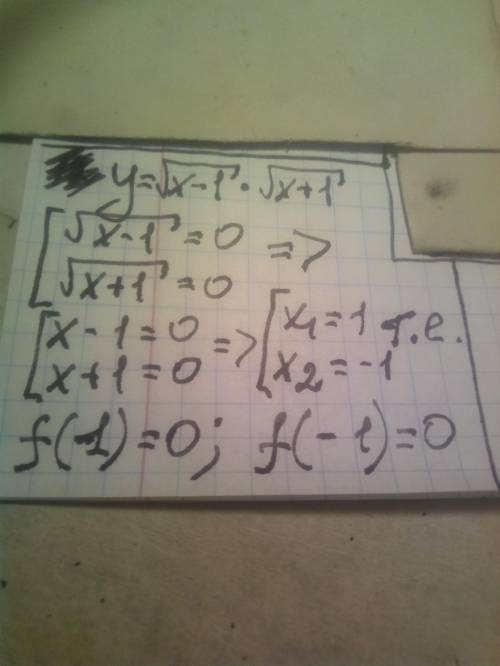 y=√x-1 · √x+1
[√x-1 = 0 =>
√x+1 = 0
[x-1=0 => [x₁=1 т.е.
x+1=0 x₂=-1
f(1)=0; f(-1)=0